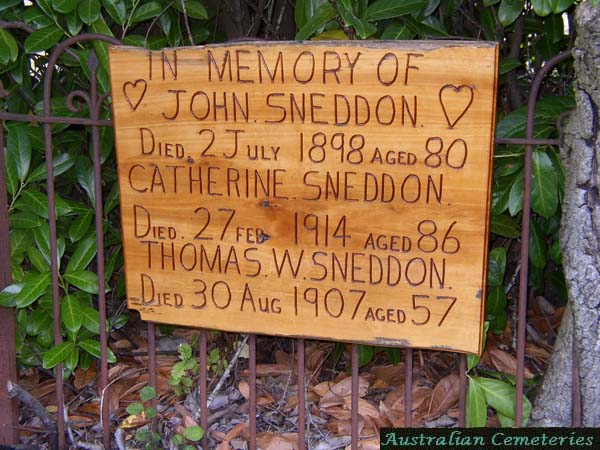 IN MEMORY OF
JOHN. SNEDDON.
DIED. 2 JULY 1898 AGED 80
CATHERINE. SNEDDON.
DIED. 27 FEB 1914 AGED 86
THOMAS. W. SNEDDON.
DIED 30 AUG 1907 AGED 57
Australian Cemeteries